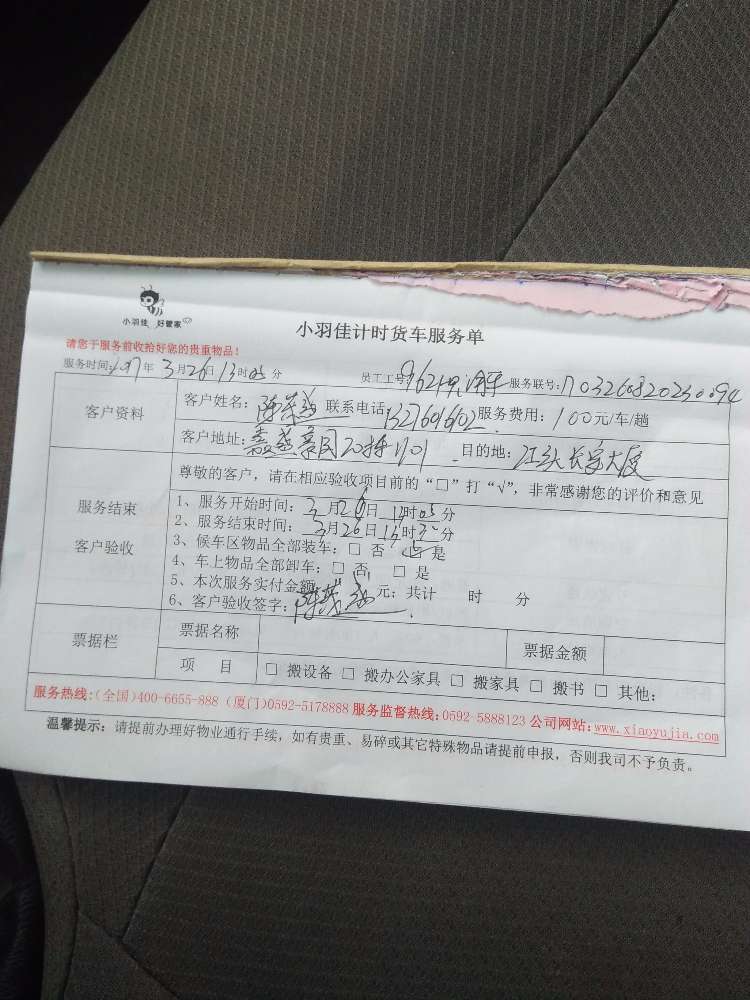 小羽佳 好管家
小羽佳计时货车服务单
请您于服务前收拾好您的贵重物品!
服务时间: 年3月26日13时05分 员工工号: 服务联号:
客户资料 客户姓名: 联系电话: 服务费用:100元/车/趟
客户地址: 目的地:江头长字大厦
尊敬的客户,请在相应验收项目前的“□”打“√”,非常感谢您的评价和意见
服务结束 客户验收
1、服务开始时间:3月26日 时05分
2、服务结束时间:3月26日 时 分
3、候车区物品全部装车:□ 否 □ 是
4、车上物品全部卸车:□ 否 □ 是
5、本次服务实付金额: 元;共计 时 分
6、客户验收签字:
票据栏 票据名称 票据金额
项 目 □ 搬设备 □ 搬办公家具 □ 搬家具 □ 搬书 □ 其他:
服务热线:(全国)400-6655-888 (厦门)0592-5178888 服务监督热线:0592-5888123 公司网站:www.xiaoyujia.com
温馨提示:请提前办理好物业通行手续,如有贵重、易碎或其它特殊物品请提前申报,否则我司不予负责。